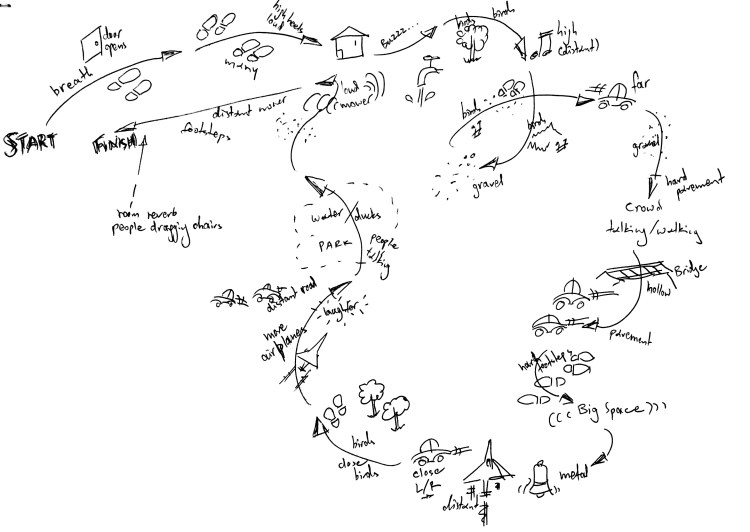 START
breath
door
opens
many
high heels
loud
Buzz....
birds
birds
high
(distant)
far
birds
birds
gravel
gravel
hard
pavement
crowd
talking/walking
Bridge
hollow
pavement
hard
footsteps
((( Big Space )))
metal
distant
close
L/R
birds
close
birds
more
airplanes
laughter
distant road
people
talking
PARK
water/ducks
loud
(mower)
distant mower
footsteps
FINISH
room reverb
people dragging chairs